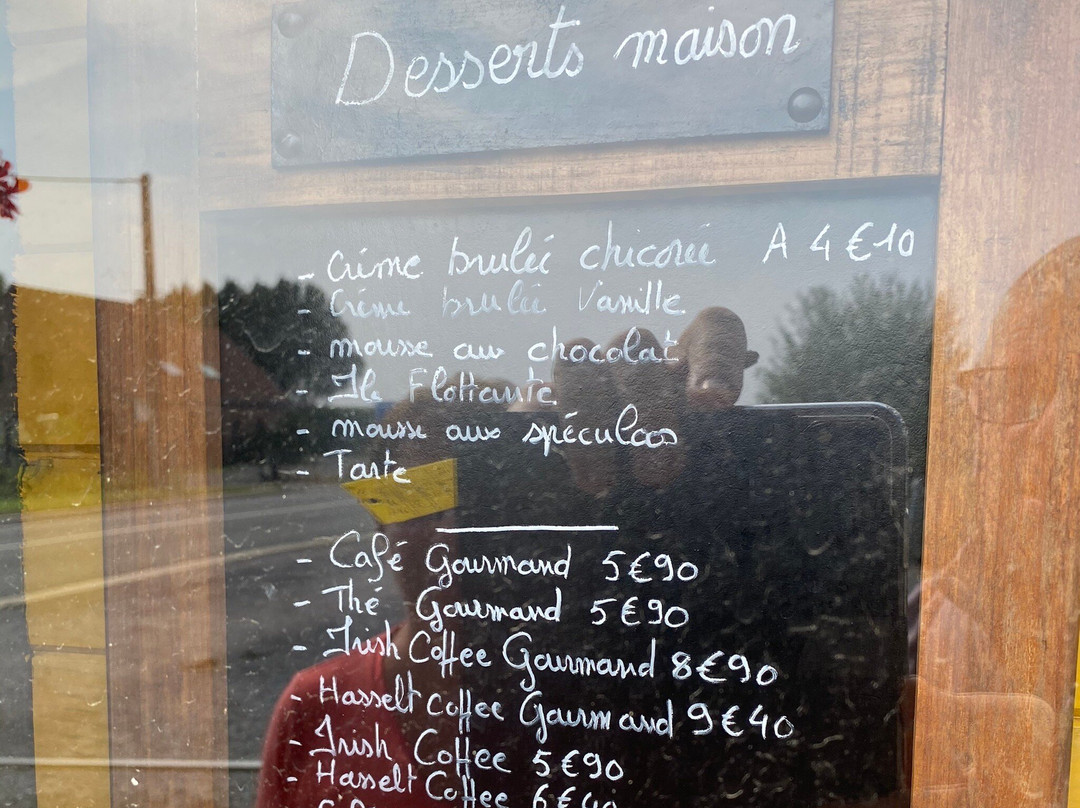 Desserts maison
- Crème brulée chicorée A 4€10
- Crème brulée Vanille
- mousse au chocolat
- Ile Flottante
- mousse aux spéculoos
- Tarte
- Café Gourmand 5€90
- Thé Gourmand 5€90
- Irish Coffee Gourmand 8€90
- Hasselt Coffee Gourmand 9€40
- Irish Coffee 5€90
- Hasselt Coffee 6€40